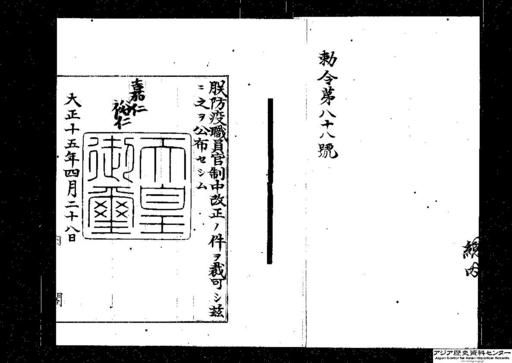 勅令第八十八號
朕防疫職員官制中改正ノ件ヲ裁可シ茲
ニ之ヲ公布セシム
嘉仁
裕仁
天皇
御璽
大正十五年四月二十八日
内
閣
アジア歴史資料センター
Japan Center for Asian Historical Records